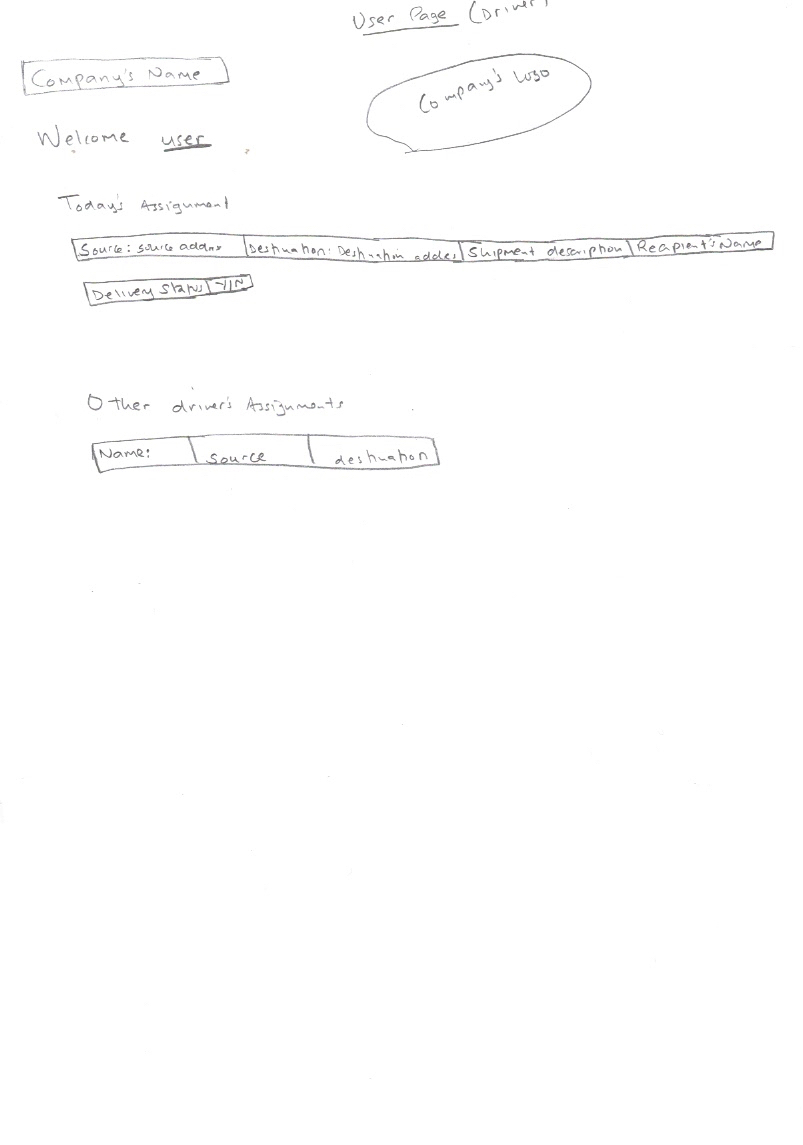 User Page (Driver)
Company's Name
Company's Logo
Welcome user
Today's Assignment
Source: source addrss Destination: Destination addes Shipment description Recipient's Name
Delivery Status Y/N
Other driver's Assignments
Name: source destination